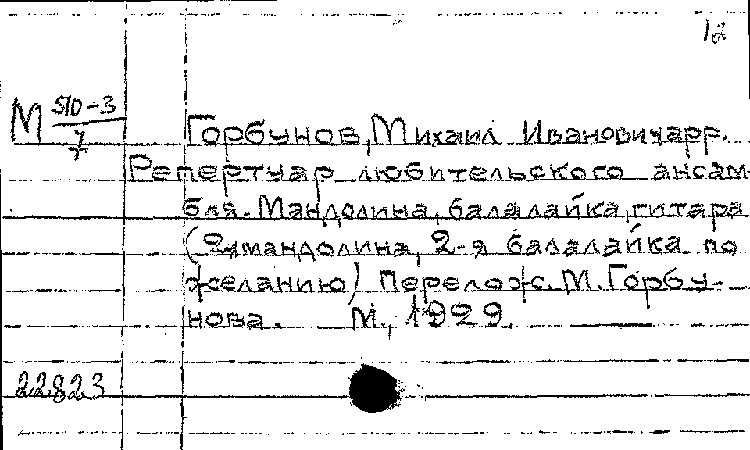 12
М 510-3
7
Горбунов, Михаил Иванович, арр.
Репертуар любительского ансам-
бля. Мандолина, балалайка, гитара
(2-я мандолина, 2-я балалайка по
желанию) Перелож. М. Горбу-
нова. М., 1929.
22823